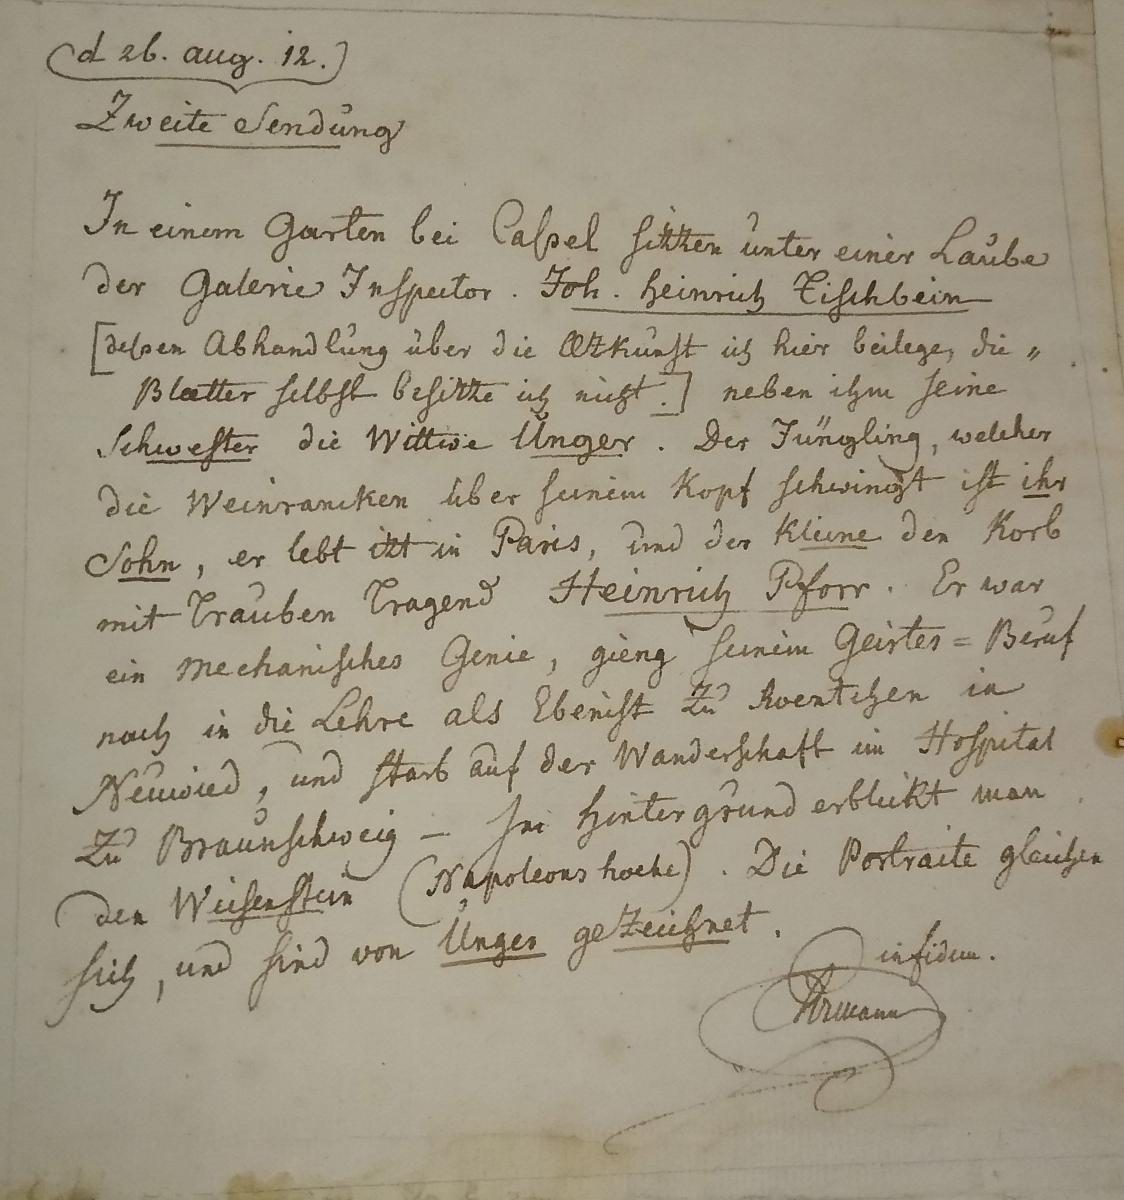 d 26. aug. 12.
Zweite Sendung
In einem Garten bei Caſsel ſitzen unter einer Laube
der Galerie Inſpector. Joh. Heinrich Tiſchbein
[deſsen Abhandlung über die Ætzkunſt ich hier beilege, die „
Blætter ſelbſt beſitze ich nicht.] neben ihm ſeine
Schweſter die Wittwe Unger. Der Jüngling, welcher
die Weinrancken über ſeinem Kopf ſchwingt iſt ihr
Sohn, er lebt izt in Paris, und der Kleine den Korb
mit Trauben Tragend Heinrich Pforr. Er war
ein mechaniſches Genie, gieng ſeinem Geiſtes = Beruf
nach in die Lehre als Ebeniſt zu Roentchen in
Neuwied, und ſtarb auf der Wanderſchaft im Hoſpital
zu Braunſchweig — Im Hintergrund erblickt man
den Weiſenſtein (Napoleons hoehe). Die Portraite gleichen
ſich, und ſind von Unger gezeichnet.
in fidem.